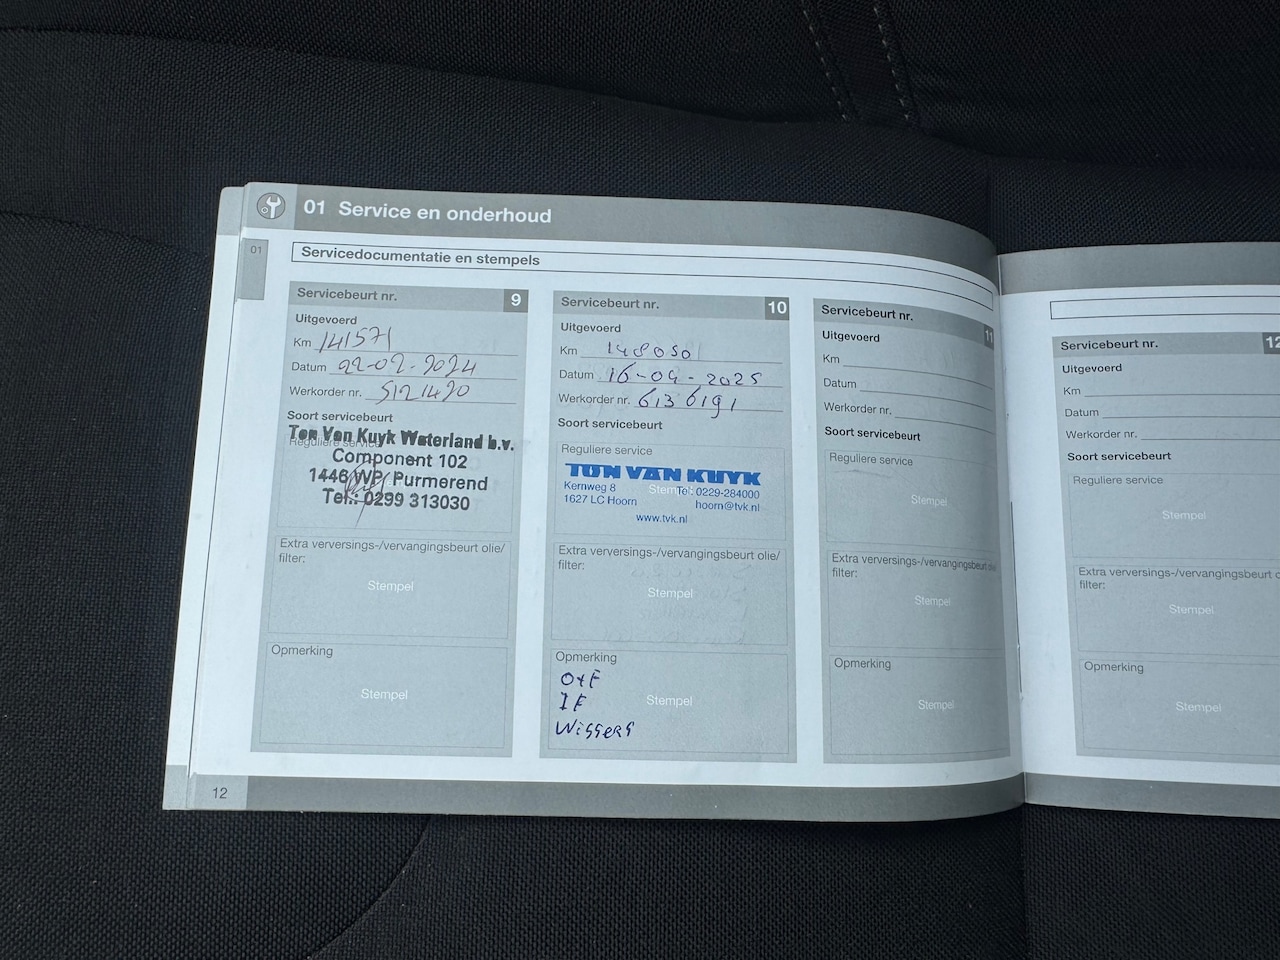 01 Service en onderhoud
01
Servicedocumentatie en stempels
Servicebeurt nr. 9
Uitgevoerd
Km 141571
Datum 22-02-2024
Werkorder nr. 5121420
Soort servicebeurt
Reguliere service
Ton Van Kuyk Waterland b.v.
Component 102
1446 WP Purmerend
Tel.: 0299 313030
Extra verversings-/vervangingsbeurt olie/
filter:
Stempel
Opmerking
Stempel
Servicebeurt nr. 10
Uitgevoerd
Km 148050
Datum 16-04-2025
Werkorder nr. 6136191
Soort servicebeurt
Reguliere service
TON VAN KUYK
Stempel
Kernweg 8 Tel: 0229-284000
1627 LC Hoorn hoorn@tvk.nl
www.tvk.nl
Extra verversings-/vervangingsbeurt olie/
filter:
Stempel
Opmerking
O+F
IF
Stempel
Wissers
Servicebeurt nr. 11
Uitgevoerd
Km
Datum
Werkorder nr.
Soort servicebeurt
Reguliere service
Stempel
Extra verversings-/vervangingsbeurt olie/
filter:
Stempel
Opmerking
Stempel
12
Servicebeurt nr. 12
Uitgevoerd
Km
Datum
Werkorder nr.
Soort servicebeurt
Reguliere service
Stempel
Extra verversings-/vervangingsbeurt
filter:
Stempel
Opmerking
Stempel